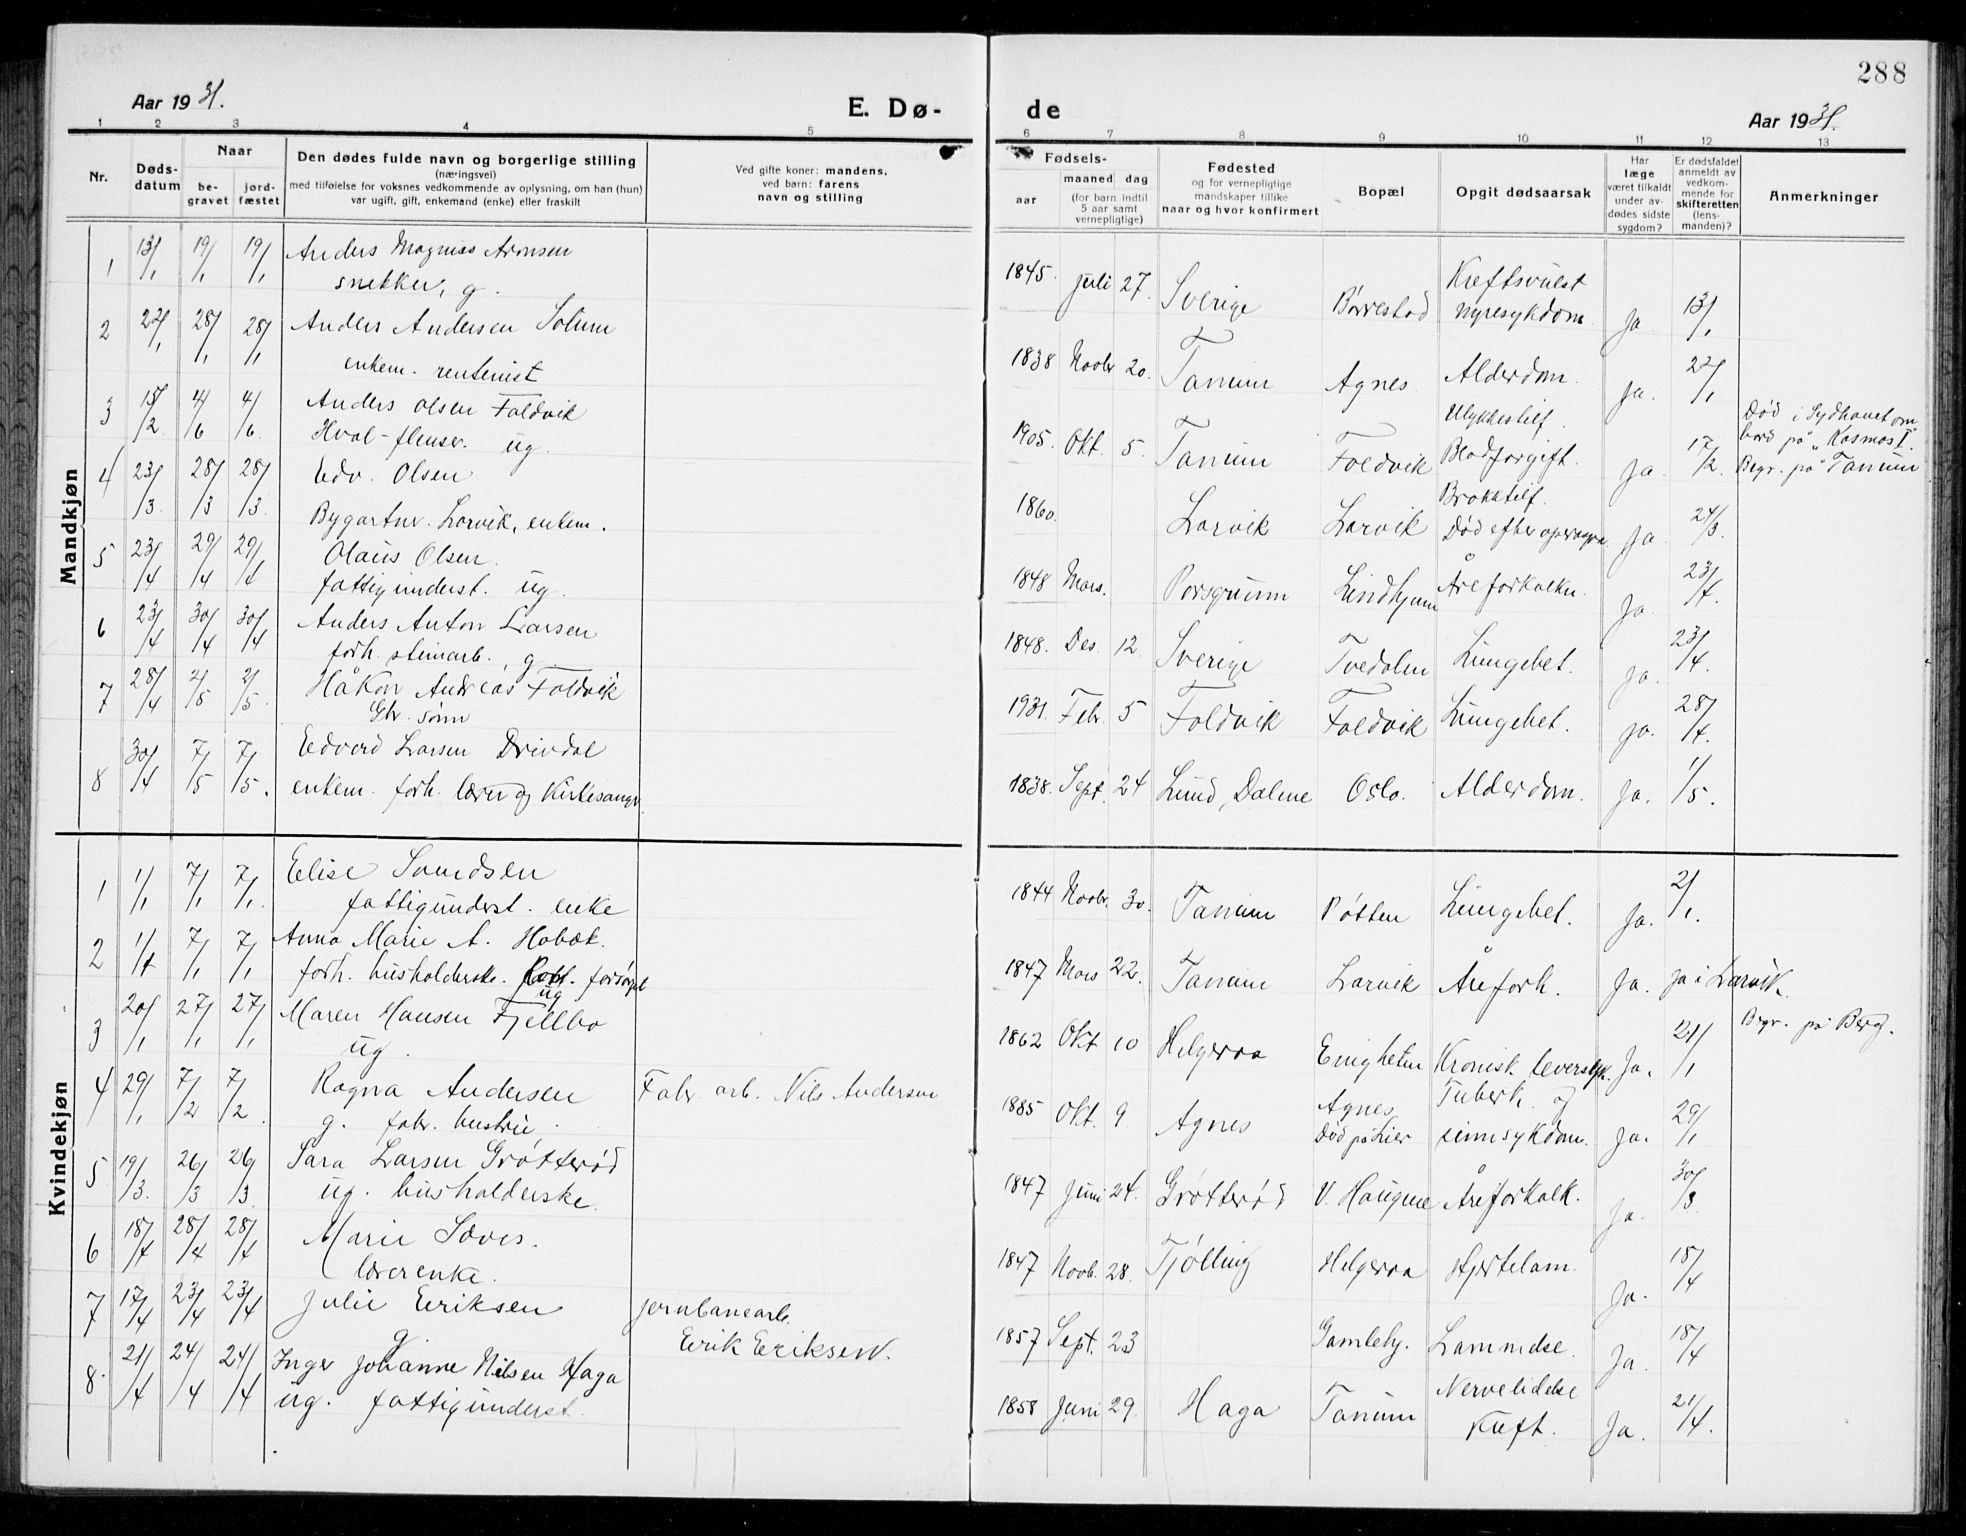 288
Aar 1931.
E. Dø-
de
Aar 1931.
1 2 3 4 5 6 7 8 9 10 11 12 13
Nr.
Døds-
datum
Naar
be-
gravet
jord-
fæstet
Den dødes fulde navn og borgerlige stilling
(næringsvei)
med tilføielse for voksnes vedkommende av oplysning, om han (hun)
var ugift, gift, enkemand (enke) eller fraskilt
Ved gifte koner: mandens,
ved barn: farens
navn og stilling
Fødsels-
aar
maaned dag
(for barn indtil
5 aar samt
vernepligtige)
Fødested
og for vernepligtige
mandskaper tillike
naar og hvor konfirmert
Bopæl
Opgit dødsaarsak
Har
læge
været tilkaldt
under av-
dødes sidste
sygdom?
Er dødsfaldet
anmeldt av
vedkom-
mende for
skifteretten
(lens-
manden)?
Anmerkninger
Mandkjøn
1 13/1 19/1 19/1 Anders Magnus Aronsen
snekker, g.
1845. Juli 27. Sverige Børrestad Kreftsvulst
nyresykdom Ja. 13/1
2 22/1 28/1 28/1 Anders Andersen Solum
enkem. rentenist
1838 Novbr 20. Tanum Agnes Alderdom. Ja. 22/1
3 15/2 4/6 4/6. Anders Olsen Foldvik
Hval-flenser. ug.
1905. Okt. 5. Tanum Foldvik Ulykkestilf.
Blodforgift. Ja. 17/2
Død i Sydhavet om
bord på "Kosmos I".
Begr. på Tanum
4 23/3 28/3 28/3. Edv. Olsen
Bygartnr. Larvik, enkem.
1860. Larvik Larvik Brokktilf.
Død efter operasjon Ja 24/3.
5 23/4 29/4 29/4 Olaus Olsen
fattigunderst. ug.
1848 Mars. Porsgrunn Lindhjem Åreforkalkn. Ja. 23/4.
6 23/4 30/4 30/4 Anders Anton Larsen
forh. steinarb., g
1848. Des. 12. Sverige Tvedalen Lungebet. Ja. 23/4.
7 28/4 2/5 2/5. Håkon Andreas Foldvik
Gbr. sønn
1931. Febr. 5 Foldvik Foldvik Lungebet. Ja. 28/4.
8 30/4 7/5 7/5. Edvard Larsen Drivdal
enkem. forh. lærer og Kirkesangr
1838. Sept. 24 Lund, Dalene Oslo. Alderdom. Ja. 1/5.
Kvindekjøn
1 1/1 7/1 7/1. Elise Svendsen
fattigunderst. enke
1844 Novbr. 30. Tanum Pøtten Lungebet. Ja. 2/1.
2 1/1 7/1 7/1 Anna Marie A. Habæk.
forh. husholderske. forsørget
ug
1847 Mars 22. Tanum Larvik Årefork. Ja. Ja i Larvik.
3 20/1 27/1 27/1 Maren Hansen Fjellbo
ug.
1862 Okt 10 Helgeroa Enigheten Kronisk leversyk. Ja. 21/1
Begr. på Berg.
4 29/1 7/2 7/2. Ragna Andersen
g. fabr. hustru.
Fabr. arb. Nils Andersen
1885 Okt. 9. Agnes Agnes,
Død på Lier Tuberk. og
sinnsykdom. Ja. 29/1
5 19/3. 26/3 26/3. Sara Larsen Grøtterød
ug. husholderske.
1847 Juni 24. Grøtterød V. Haugene Åreforkalk. Ja. 30/3.
6 18/4 28/4 28/4 Marie Sæves.
lærerenke.
1847 Novb. 28. Tjølling Helgeroa Hjertelam. Ja. 18/4
7 17/4 23/4 23/4 Julie Eriksen
g.
jernbanearb.
Erik Eriksen.
1857 Sept. 23 Gamleby. Lammelse. Ja. 18/4
8. 21/4 24/4 24/4 Inger Johanne Nilsen Haga
ug. fattigunderst.
1858 Juni 29. Haga Tanum Nervelidelse
Kreft. Ja. 21/4.